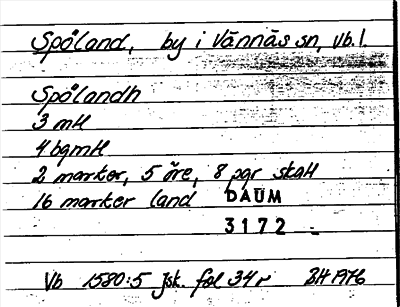 Spöland, by i Vännäs sn, Vb. l.
Spölandh
3 mtl
4 bgmtl
2 marker, 5 öre, 8 pgr skatt
16 marker land DAUM
3172
Vb 1580:5 Jsk. fol 34 r BH 1976